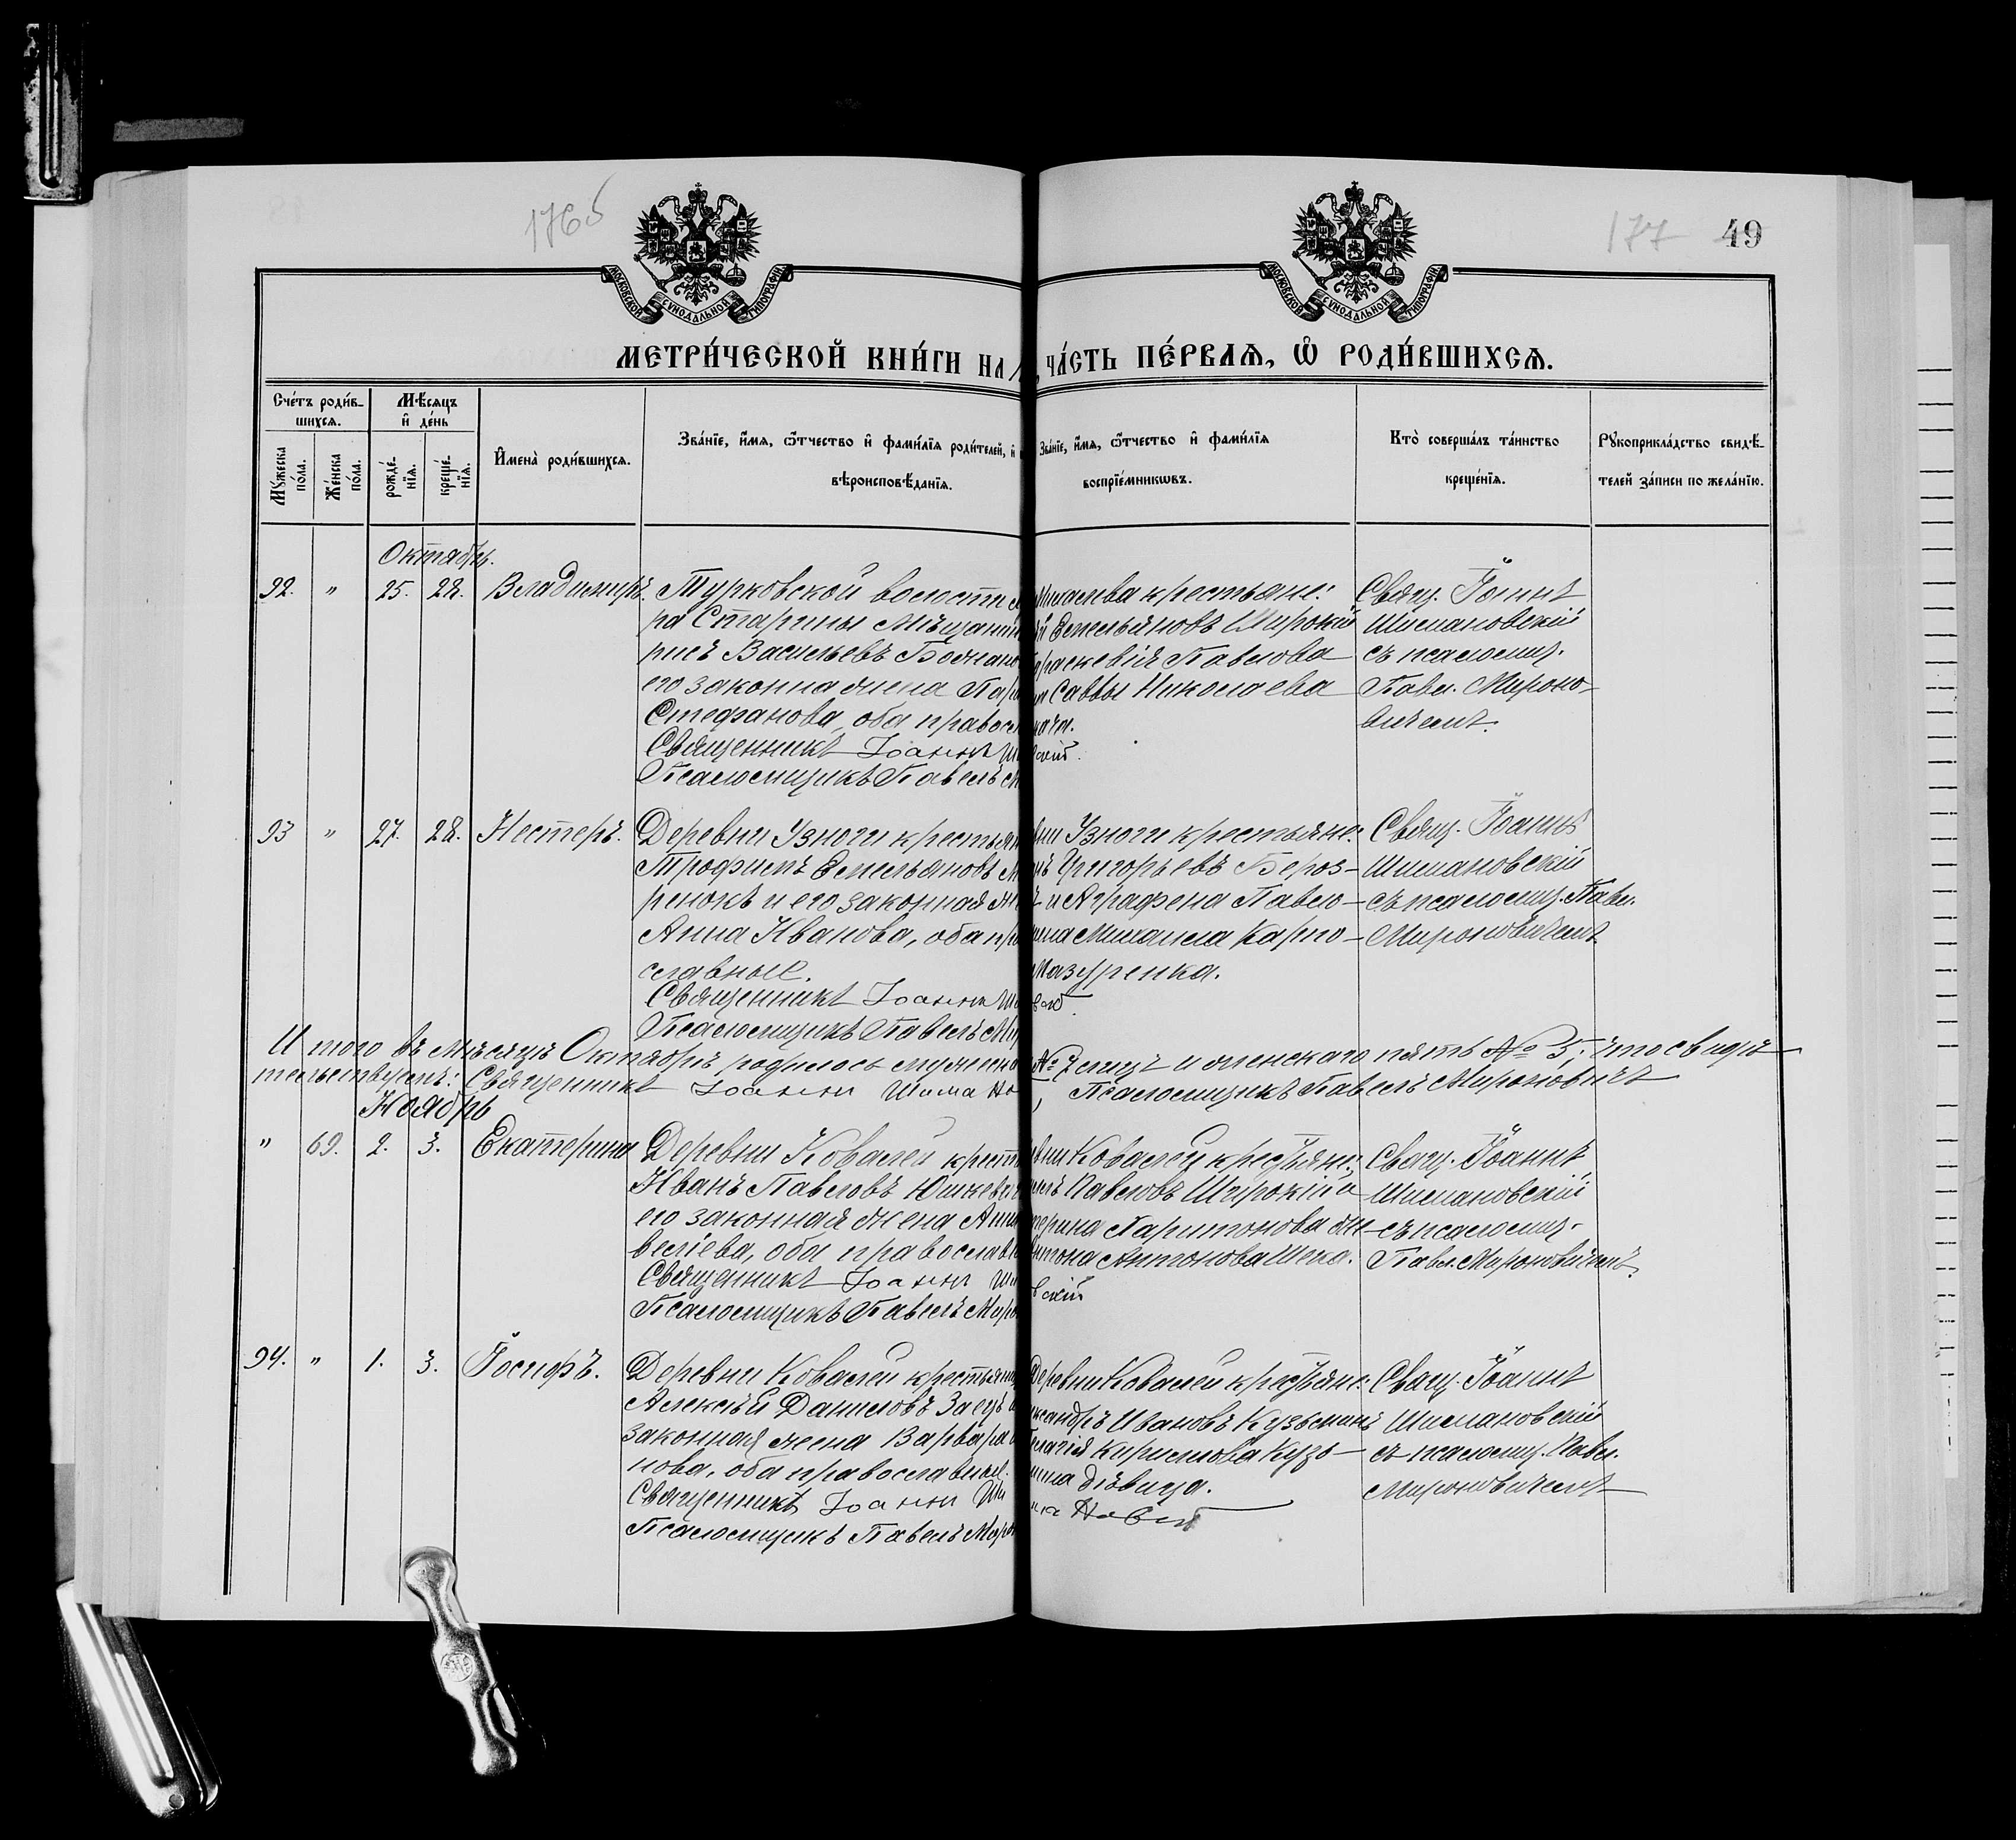 176б
177 49
МОСКОВСКОЙ СѴНОДАЛЬНОЙ ТИПОГРАФІИ
МОСКОВСКОЙ СѴНОДАЛЬНОЙ ТИПОГРАФІИ
МЕТРИ́ЧЕСКОЙ КНИ́ГИ НА
ЧА́СТЬ ПЕ́РВАЯ, Ѡ РОДИ́ВШИХСЯ.
Счетъ родив-
шихся.
Мѣсяцъ
и день
Мужеска пола.
Женска пола.
рожде-
нія.
креще-
нія.
Имена родившихся.
Званіе, имя, отчество и фамилія родителей, и
вѣроисповѣданія.
Званіе, имя, отчество и фамилія
воспріемниковъ.
Кто совершалъ таинство
крещенія.
Рукоприкладство свидѣ-
телей записи по желанію.
Октябрь.
92. " 25. 28. Владимиръ.
Турковской волости
ра Старины мѣщанин
рисъ Васильевъ
его законна жена Пар
Стефанова, оба правосл
Священникъ Іоаннъ Ши
Псаломщикъ Павелъ М
крестьяне:
Емельяновъ Широкій
Параскевія Павлова
Саввы Николаева
Свящ. Іоаннъ
Шимановскій
съ псаломщ.
Павл. Мироно-
вичемъ.
93 " 27. 28. Нестеръ.
Деревни Узноги крестьян
Трофимъ Емельяновъ М
ренокъ и его законная же
Анна Иванова, оба пра
славные.
Священникъ Іоаннъ Ши
Псаломщикъ Павелъ Ми
вни Узноги крестьяне:
нъ Григорьевъ Бероз-
ъ и Аграфена Павло-
ена Михаила Карпо-
Мазуренка.
Свящ. Іоаннъ
Шимановскій
съ псаломщ. Павл.
Мироновичемъ
Итого въ мѣсяцѣ Октябрѣ родилось мужеска
№ 7 семь и женскаго пять № 5; что свидѣ-
тельствуемъ: Священникъ Іоаннъ Шимано
Псаломщикъ Павелъ Мироновичъ
Ноябрь
" 69. 2. 3. Екатерина
Деревни Ковалей крест
Иванъ Павловъ Юшкевич
его законная жена Анн
веліева, оба православн
Священникъ Іоаннъ Ши
Псаломщикъ Павелъ Миро
вни Ковалей крестьяне:
илъ Павловъ Широкій и
терина Харитонова же-
Антона Антонова
вскій
Свящ. Іоаннъ
Шимановскій
съ псаломщ.
Павл. Мироновичемъ.
94. " 1. 3. Іосифъ.
Деревни Ковалей крестьянин
Алексѣй Даниловъ Заецъ и
законная жена Варвара
нова, оба православные.
Священникъ Іоаннъ Ши
Псаломщикъ Павелъ Миро
Деревни Ковалей крестьяне:
ександръ Ивановъ Кузьминъ
Пелагія Кирилова Кузь-
мина дѣвица.
ма Новскій
Свящ. Іоаннъ
Шимановскій
съ псаломщ. Павл.
Мироновичемъ